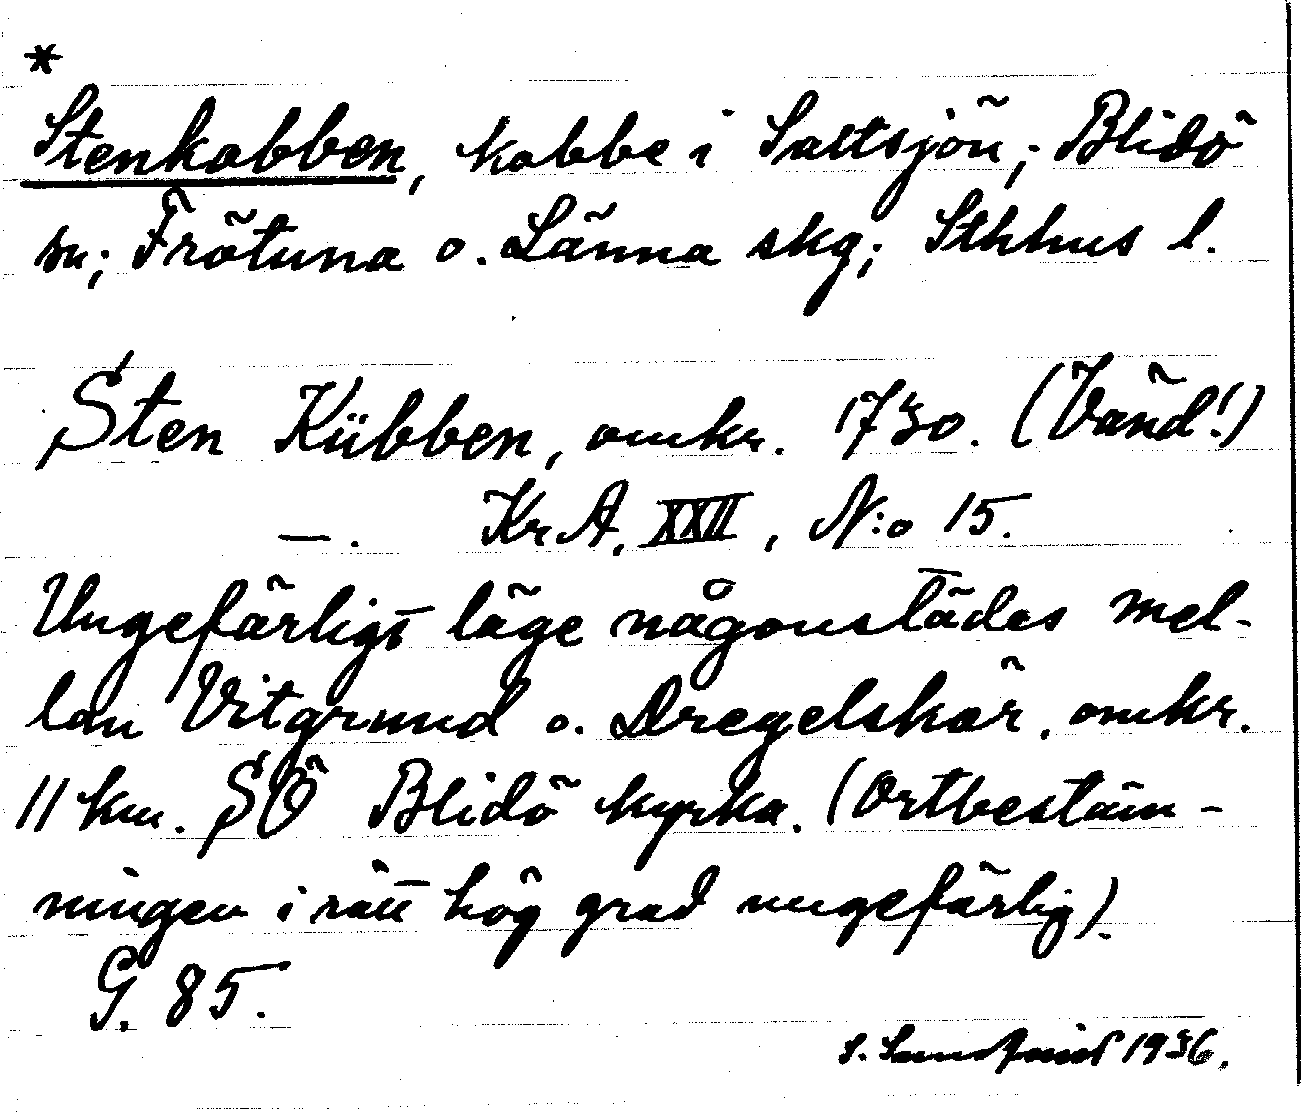 *
Stenkobben, kobbe i Saltsjön; Blidö
sn; Frötuna o. Länna skg; Sthlms l.
Sten Kübben, omkr. 1730. (Vänd!)
—. KrA, XXII, N:o 15.
Ungefärligt läge någonstädes mel-
lan Vitgrund o. Dregelskär, omkr.
11 km. SÖ Blidö kyrka. (Ortbestäm-
ningen i rätt hög grad ungefärlig).
G. 85.
1936.